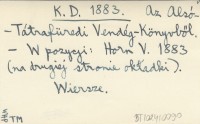 K.D. 1883. Az Alsó-
-Tátrafüredi Vendég-Könyvből.
- W pozycji: Horn V. 1883
(na drugiej stronie okładki).
Wiersze.
TM